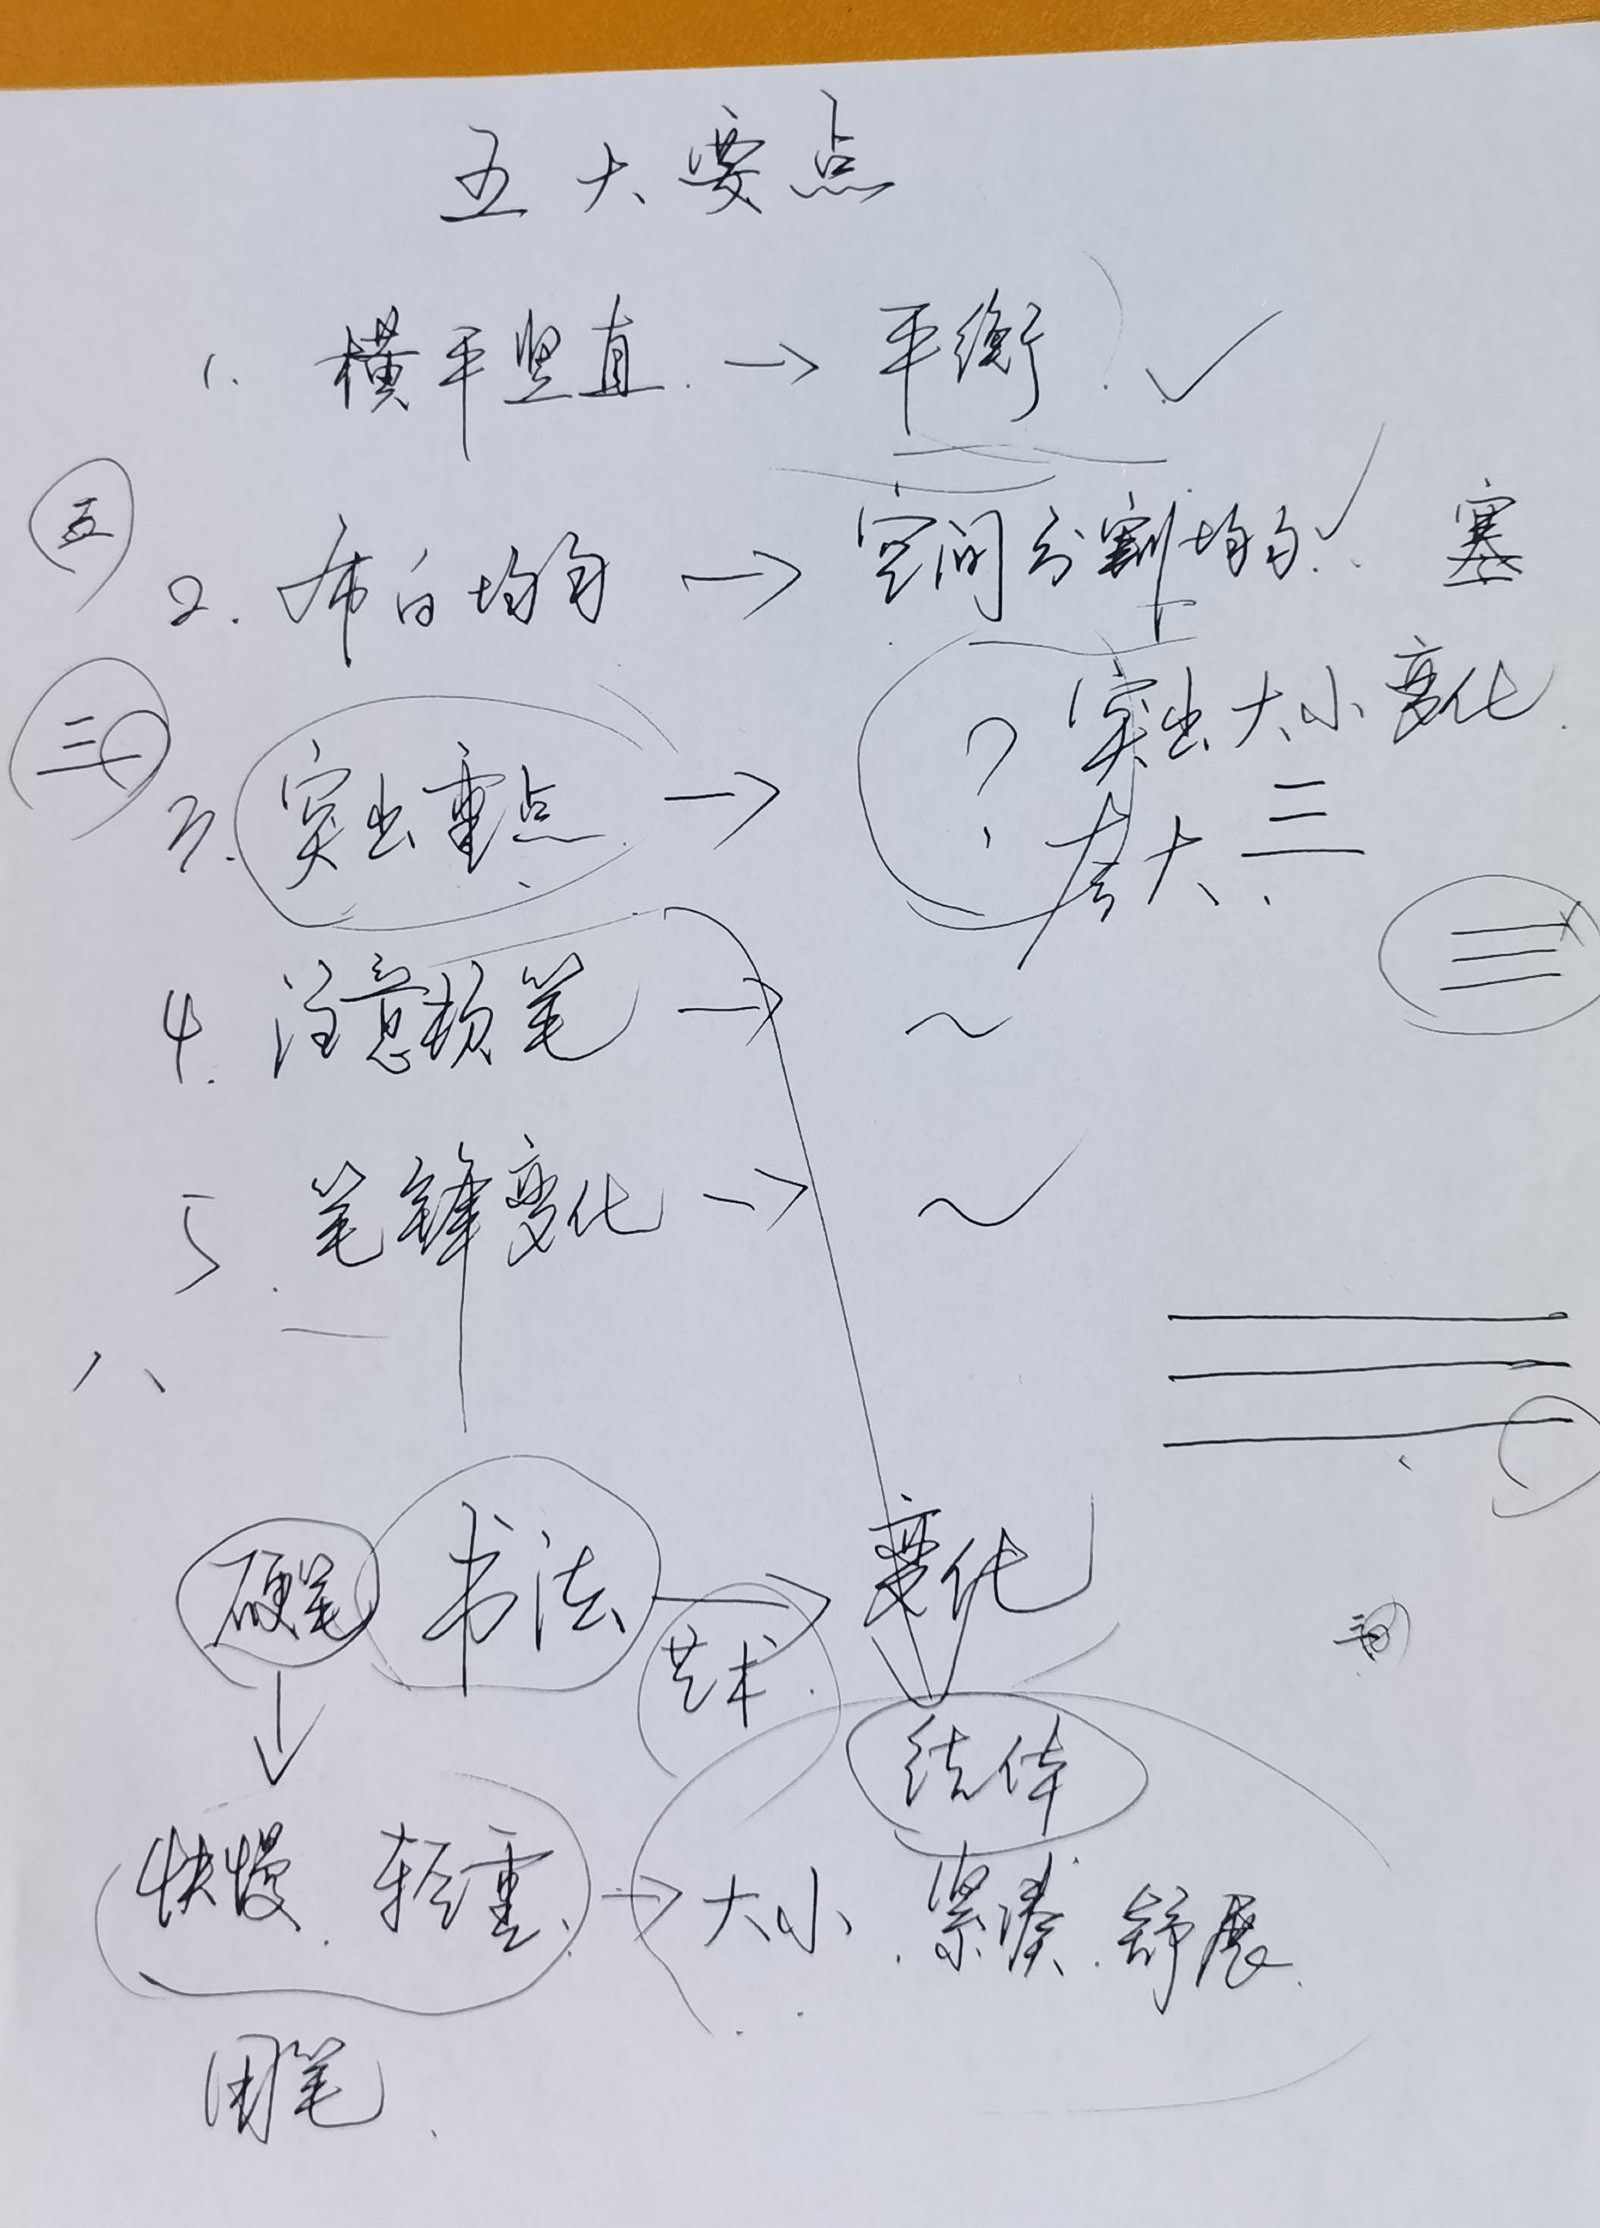 五大要点
1. 横平竖直. → 平衡. ✓
五
2. 布白均匀 → 空间分割均匀. ✓ 塞
三
3. 突出重点 → ? 突出大小变化.
夸大. 三
三
4. 注意顿笔 → ~
5. 笔锋变化 → ~
八
硬笔 书法 → 变化
艺术.
结体
快慢. 轻重. → 大小. 紧凑. 舒展.
用笔.